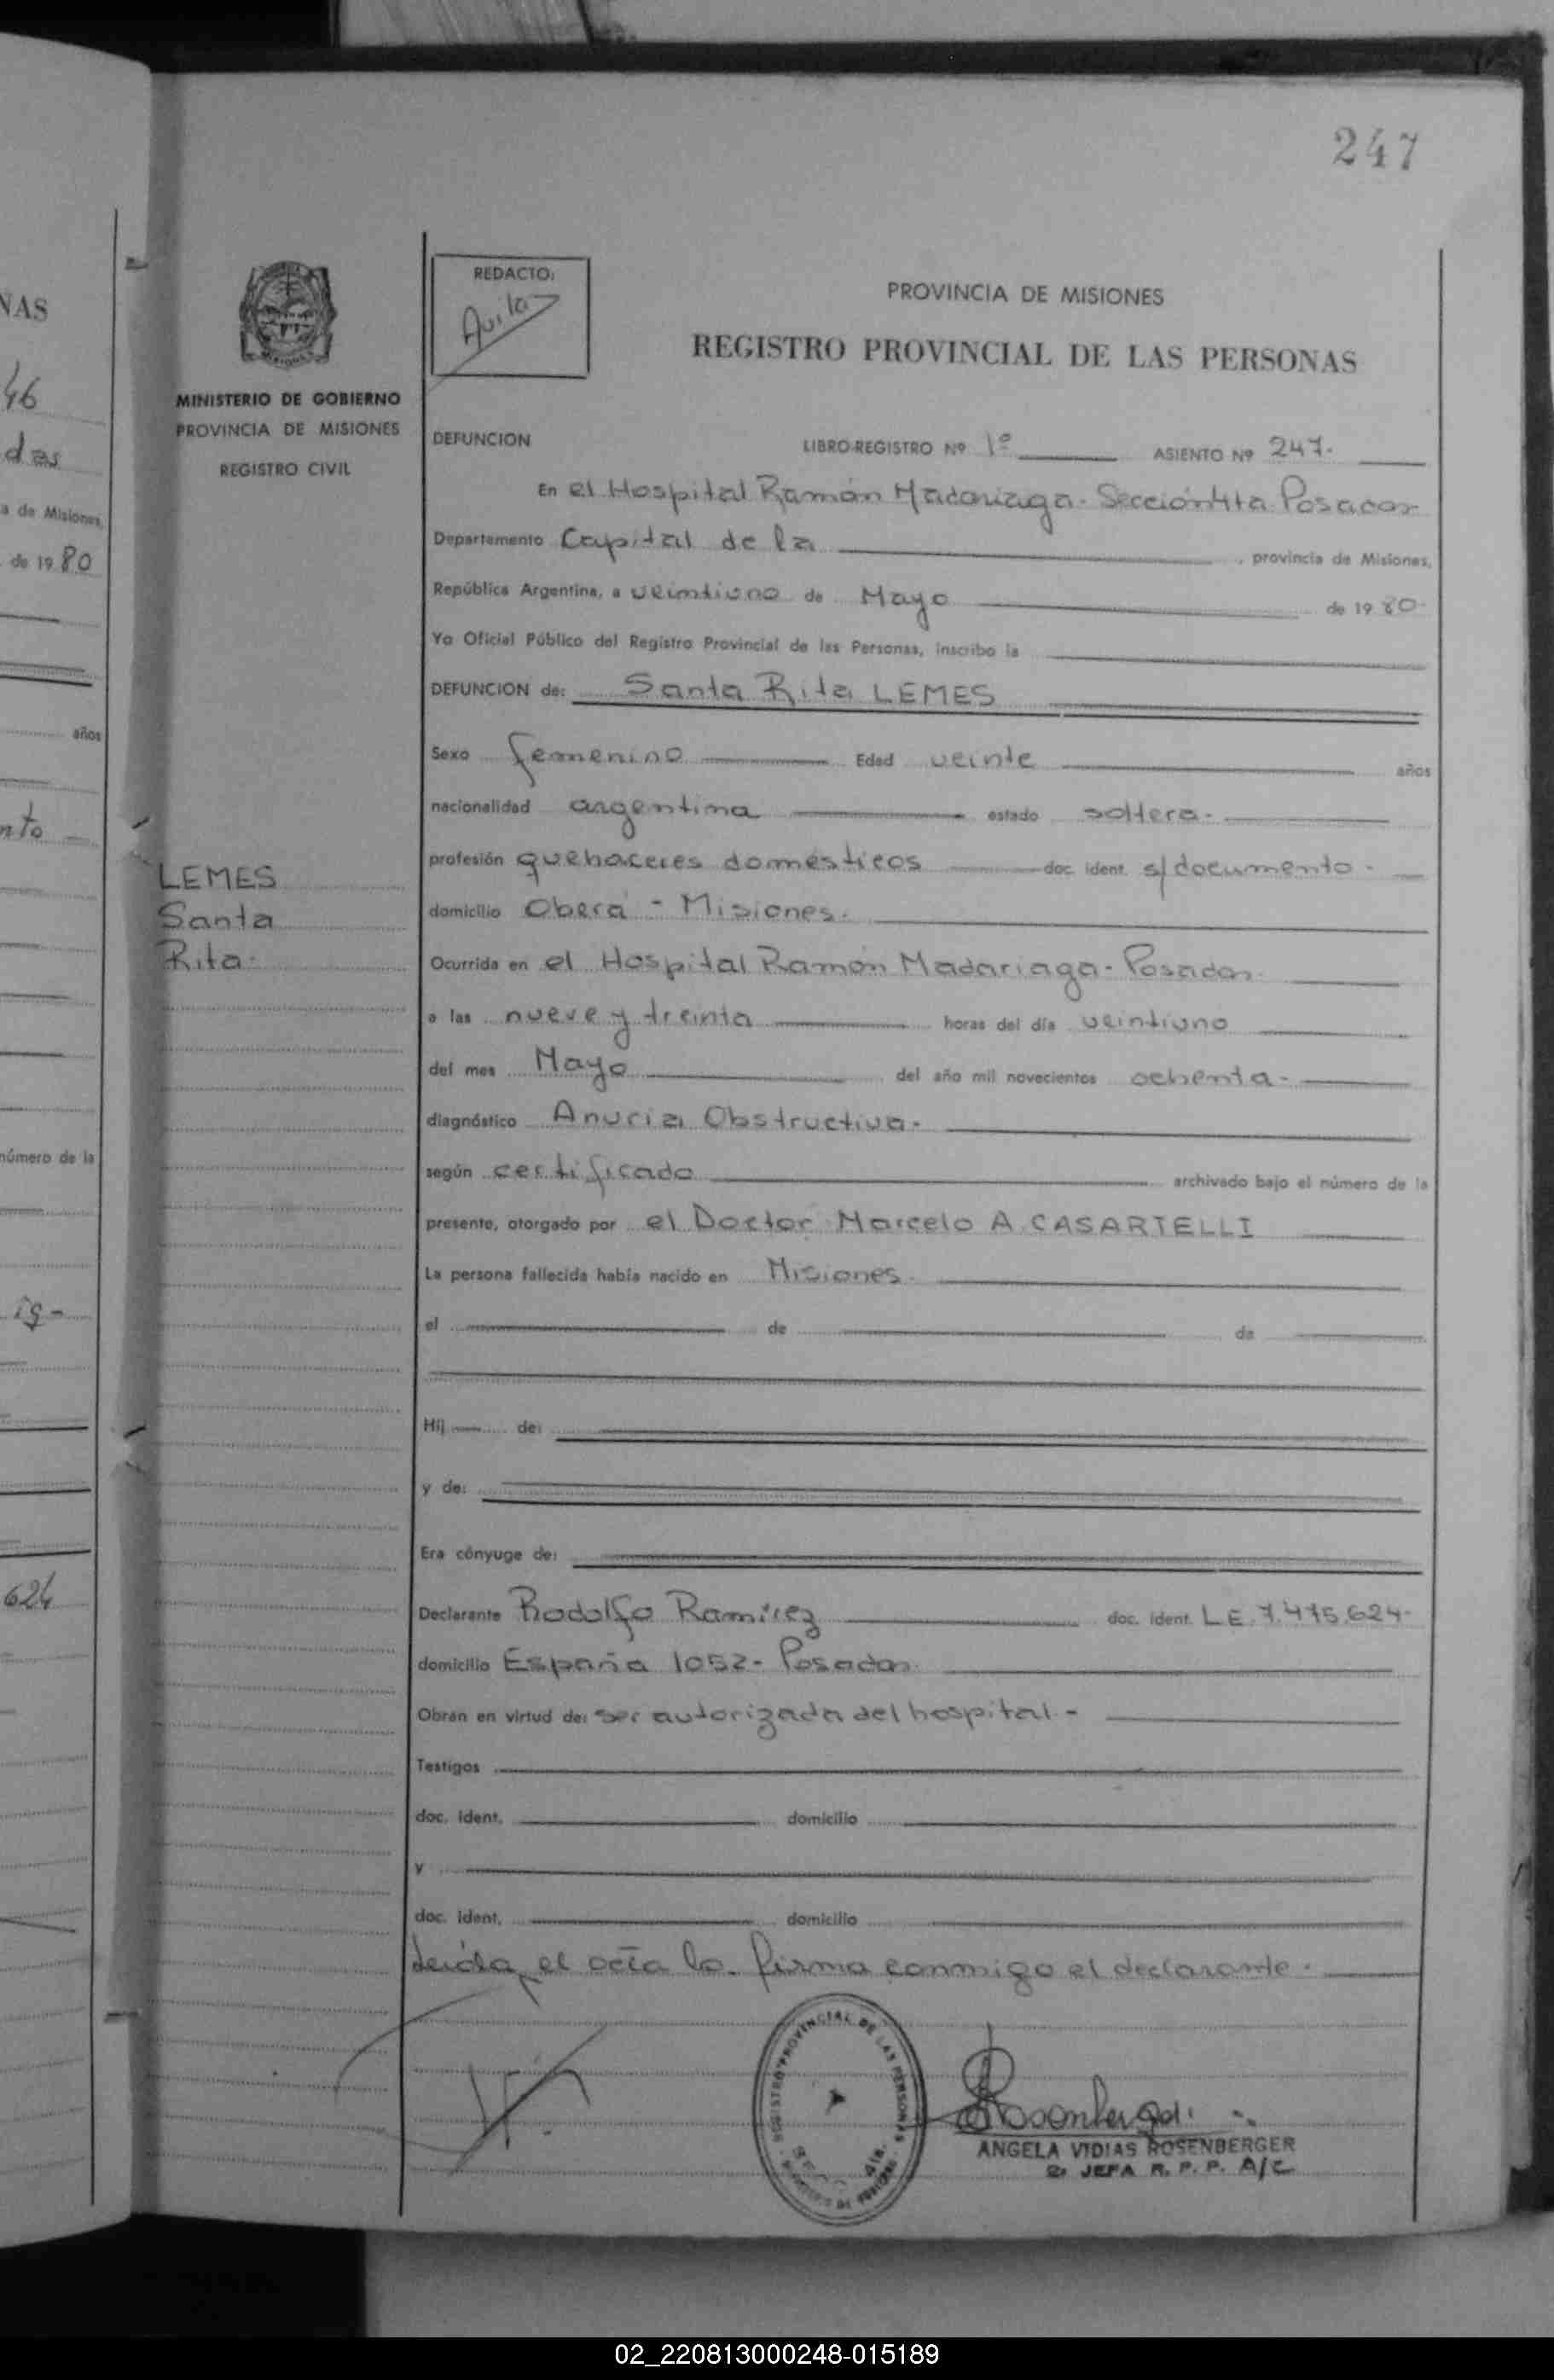 247
NAS
46
das
a de Misiones,
de 1980
años
nto
número de la
ig-
624
MINISTERIO DE GOBIERNO
PROVINCIA DE MISIONES
REGISTRO CIVIL
LEMES
Santa
Rita.
REDACTO:
Avila
PROVINCIA DE MISIONES
REGISTRO PROVINCIAL DE LAS PERSONAS
DEFUNCION LIBRO-REGISTRO Nº 1º ASIENTO Nº 247.
En el Hospital Ramón Madariaga- Sección 4ta Posadas
Departamento Capital de la , provincia de Misiones,
República Argentina, a veintiuno de Mayo de 1980-
Yo Oficial Público del Registro Provincial de las Personas, inscribo la
DEFUNCION de: Santa Rita LEMES
Sexo femenino Edad veinte años
nacionalidad argentina estado soltera.
profesión quehaceres domésticos doc. ident. s/documento -
domicilio Oberá - Misiones.
Ocurrida en el Hospital Ramón Madariaga- Posadas
a las nueve y treinta horas del día veintiuno
del mes Mayo del año mil novecientos ochenta-
diagnóstico Anuria Obstructiva.
según certificado archivado bajo el número de la
presente, otorgado por el Doctor Marcelo A. CASARTELLI
La persona fallecida había nacido en Misiones.
el de de
Hij de:
y de:
Era cónyuge de:
Declarante Rodolfo Ramírez doc. ident. L.E. 7.475.624-
domicilio España 1052- Posadas.
Obran en virtud de: ser autorizada del hospital -
Testigos
doc. ident. domicilio
y
doc. ident. domicilio
Leída el acta la firma conmigo el declarante.
REGISTRO PROVINCIAL DE LAS PERSONAS
SECC. 4ta.
ANGELA VIDIAS ROSENBERGER
JEFA R. P. P. A/C
02_220813000248-015189